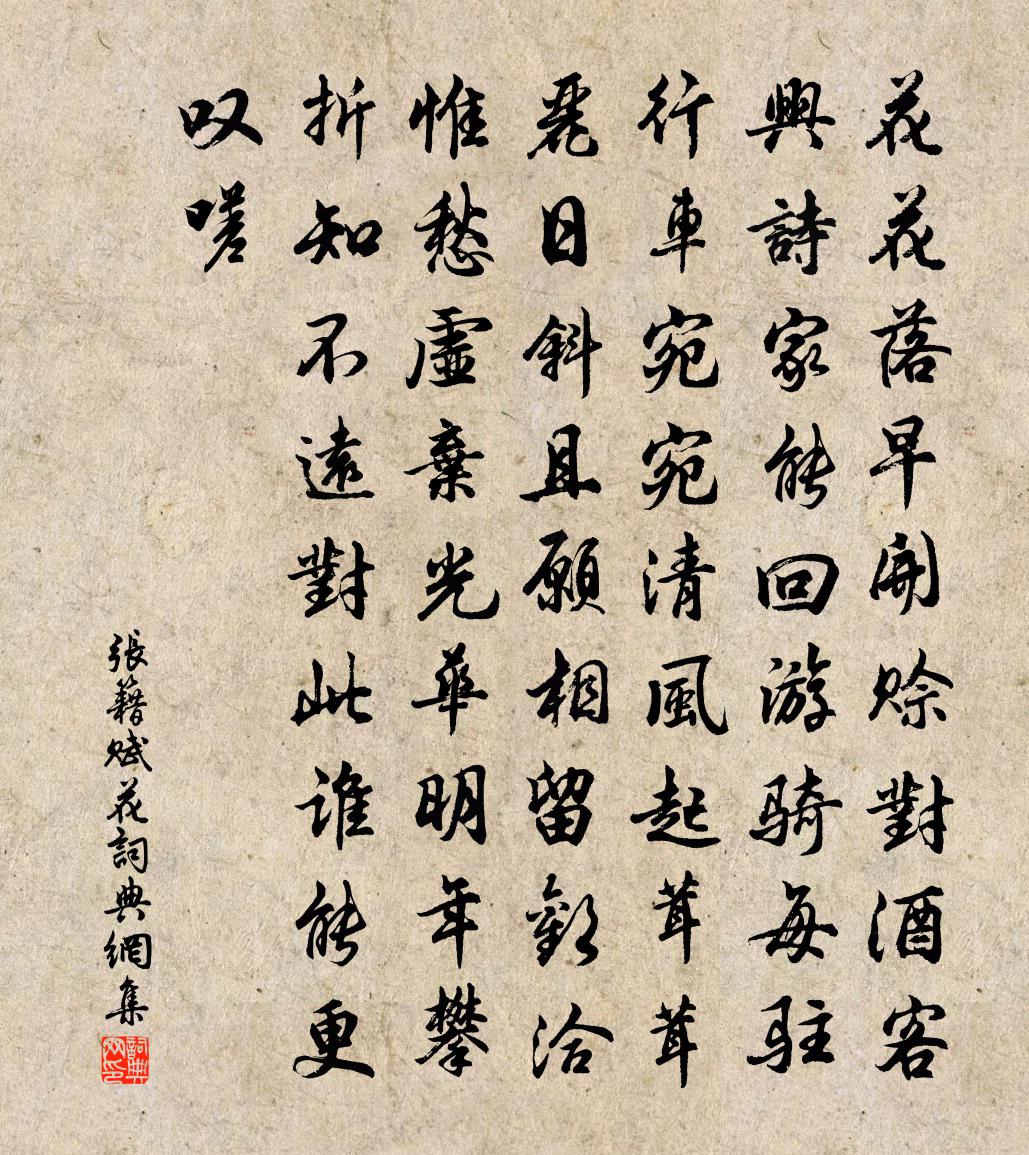 花花落早開賒對酒客
興詩家能回游騎每駐
行車宛宛清風起茸茸
麗日斜且願相留歡洽
惟愁虛棄光華明年攀
折知不遠對此誰能更
叹嗟
張籍賦花詞典網集
詞典网印